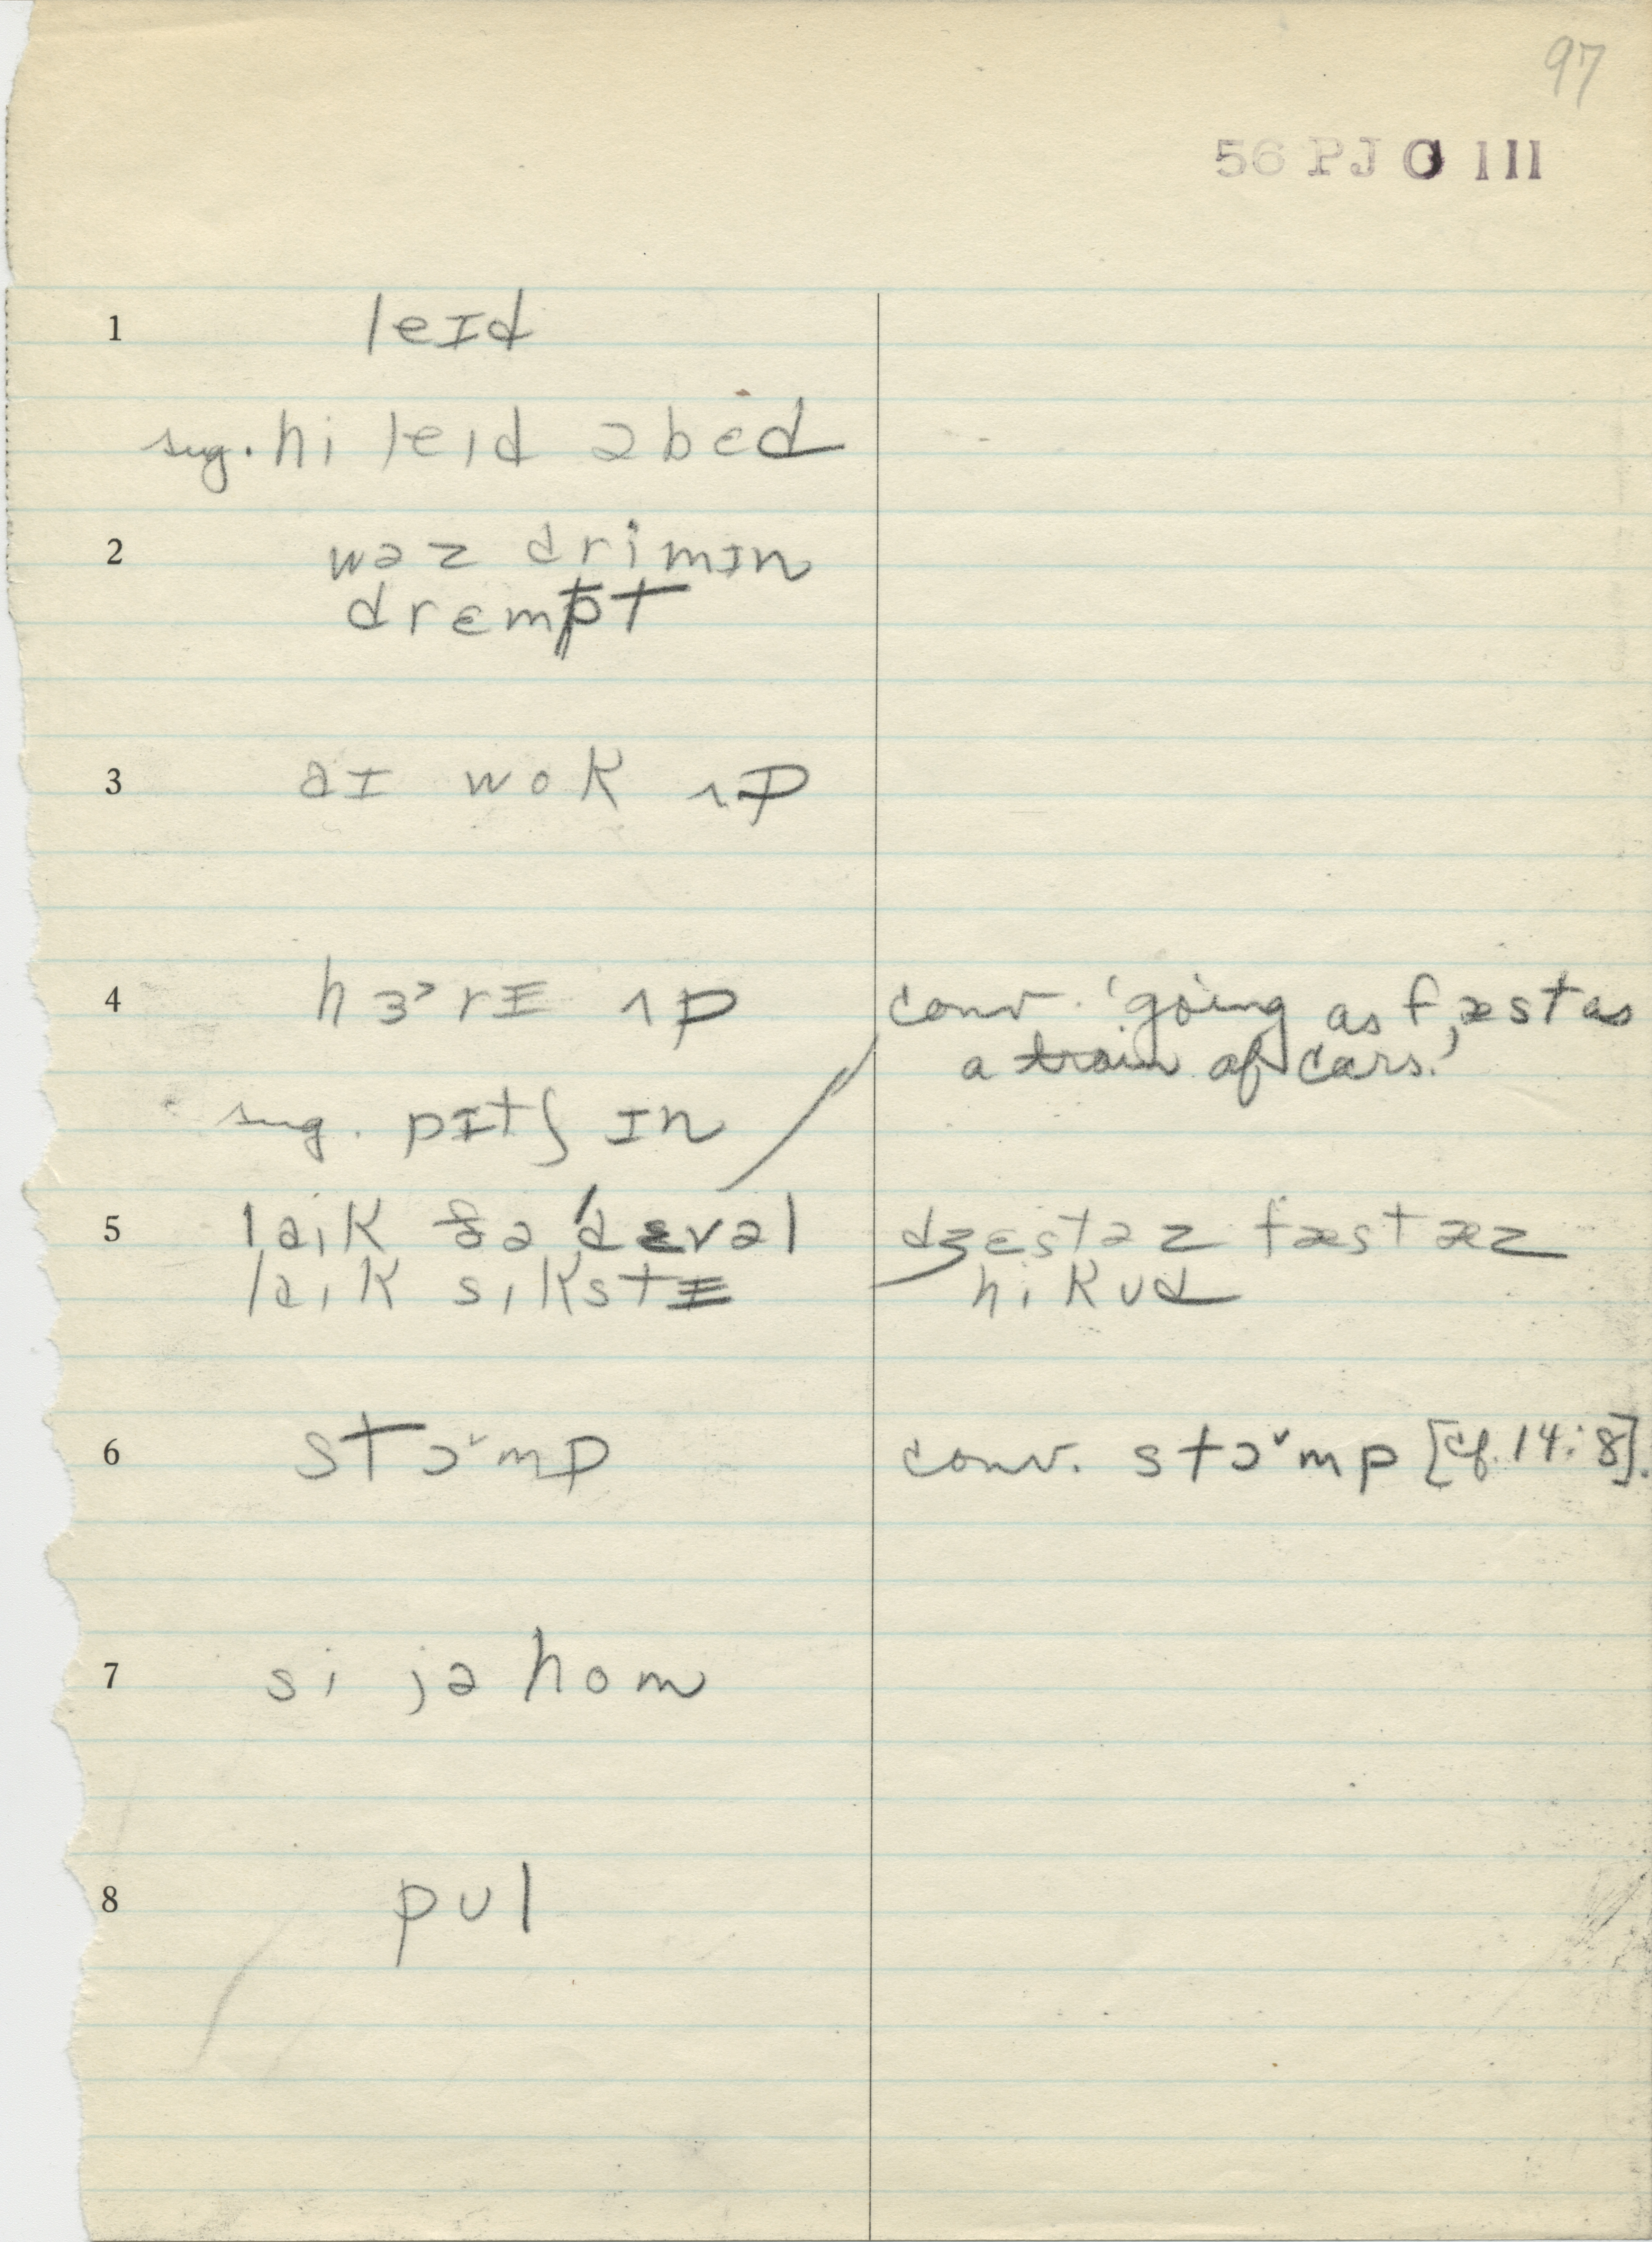 97
56 PJ O 111
1 leɪd
sug. hi leɪd əbɛd
2 wəz drimɪn
drɛmpt
3 aɪ wok ʌp
4 hɜ˞rɪ ʌp
conv. 'going as fæst as
a train of cars.'
sug. pɪtʃ ɪn
5 laɪk ðə 'dɛvəl
laɪk sɪkstɪ
dʒɛst əz fæst æz
hi kʊd
6 stɔ˅mp
conv. stɔ˅mp [cf. 14:8].
7 si jə hom
8 pʊl